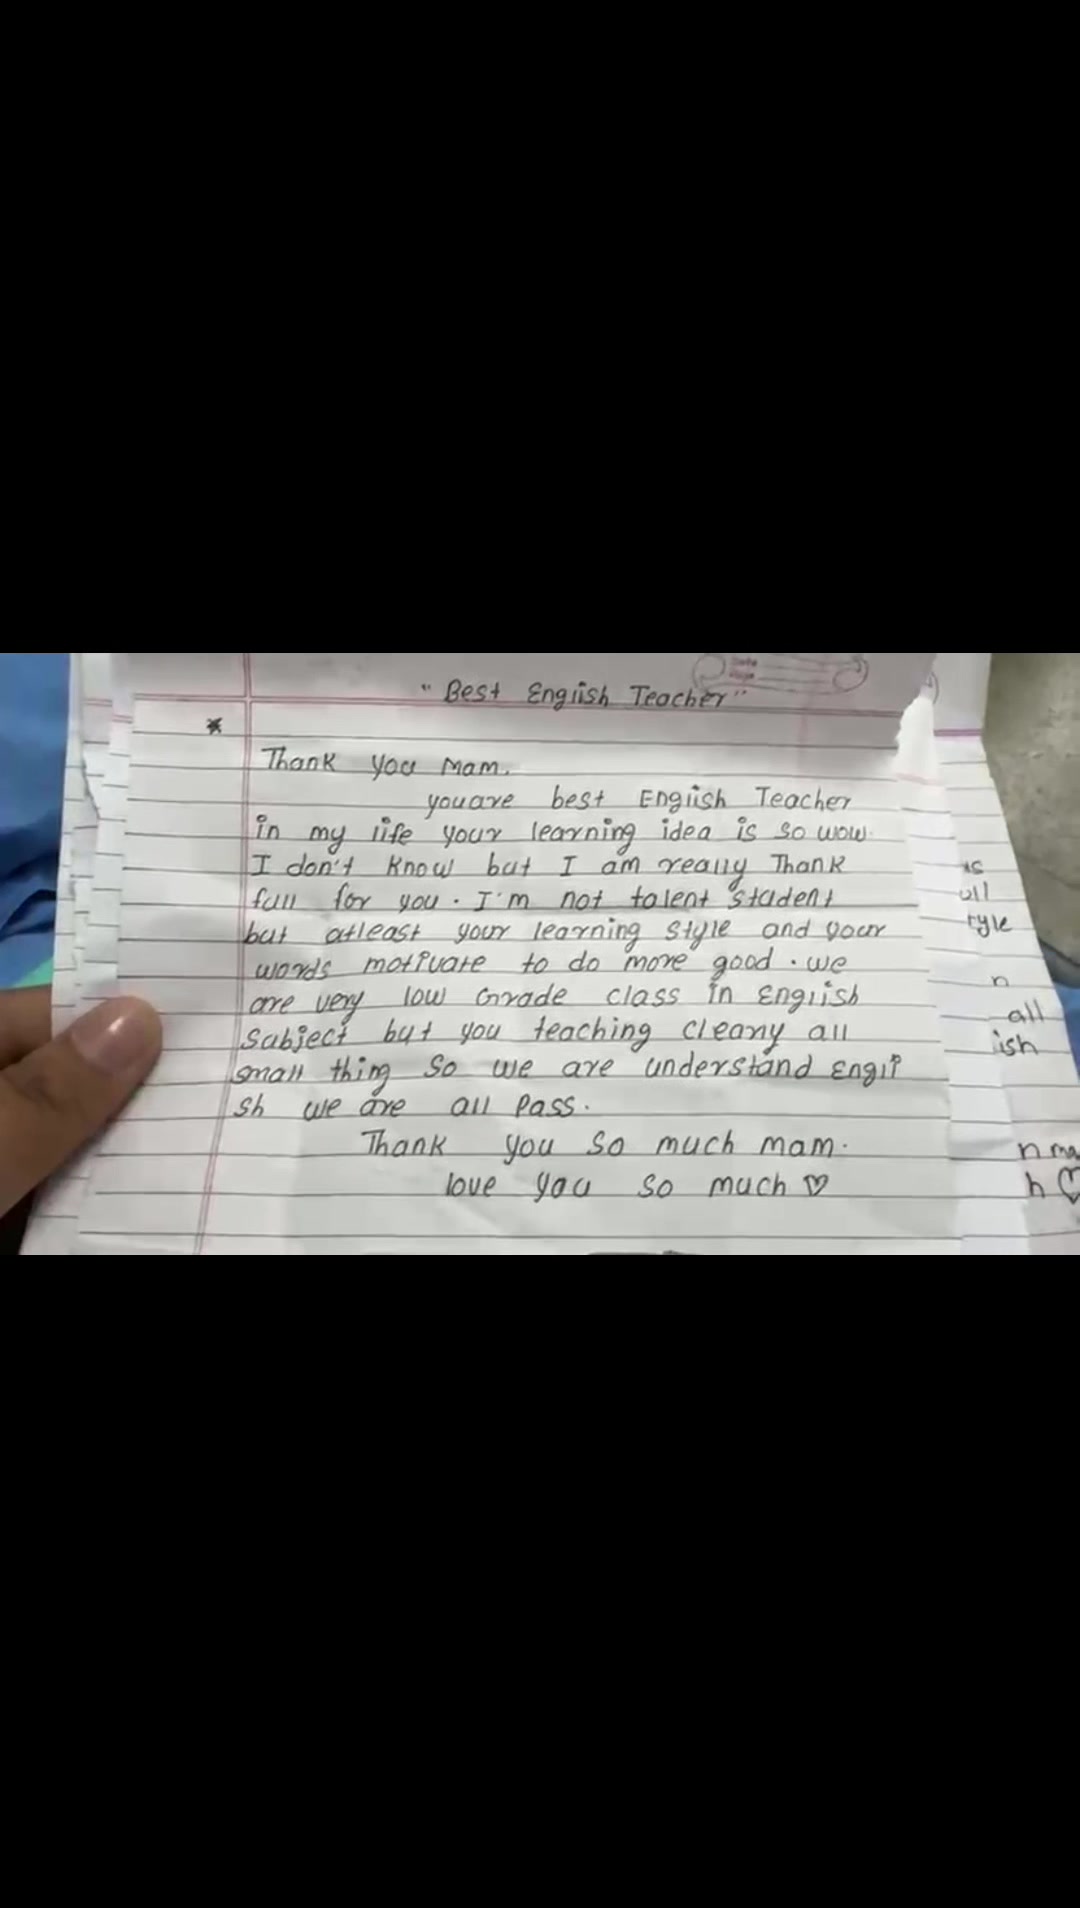 "Best English Teacher"
*
Thank you mam.
you are best English Teacher
in my life your learning idea is so wow.
I don't know but I am really Thank
full for you. I'm not talent student
but atleast your learning style and your
words motivate to do more good. we
are very low Grade class in English
Subject but you teaching cleany all
small thing so we are understand Engli
sh we are all pass.
Thank you so much mam.
love you so much ♡